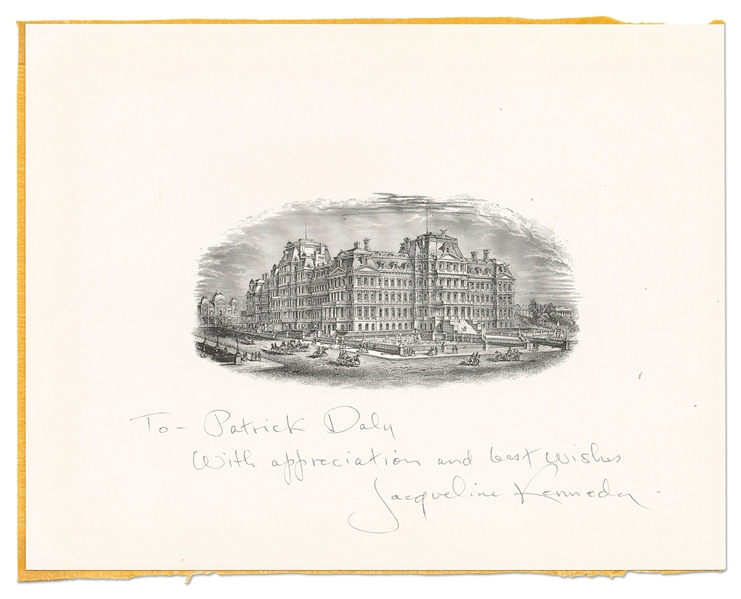 To - Patrick Daly
With appreciation and best wishes
Jacqueline Kennedy -